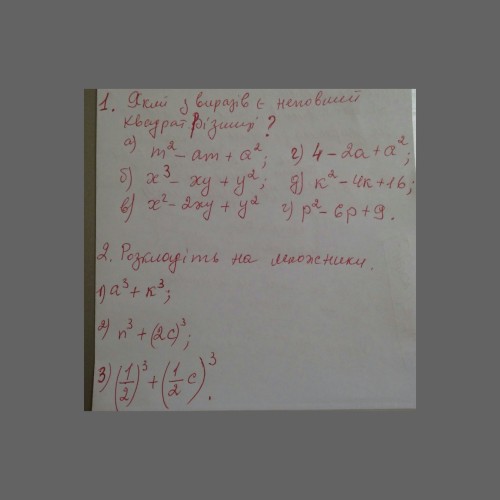 1. Який з виразів є неповний
квадрат різниці?
а) m² - am + a²; г) 4 - 2a + a²;
б) x³ - xy + y²; д) к² - 4к + 16;
в) x² - 2xy + y² г) p² - 6p + 9.
2. Розкладіть на множники.
1) a³ + к³;
2) n³ + (2c)³;
3) (1/2)³ + (1/2 c)³.